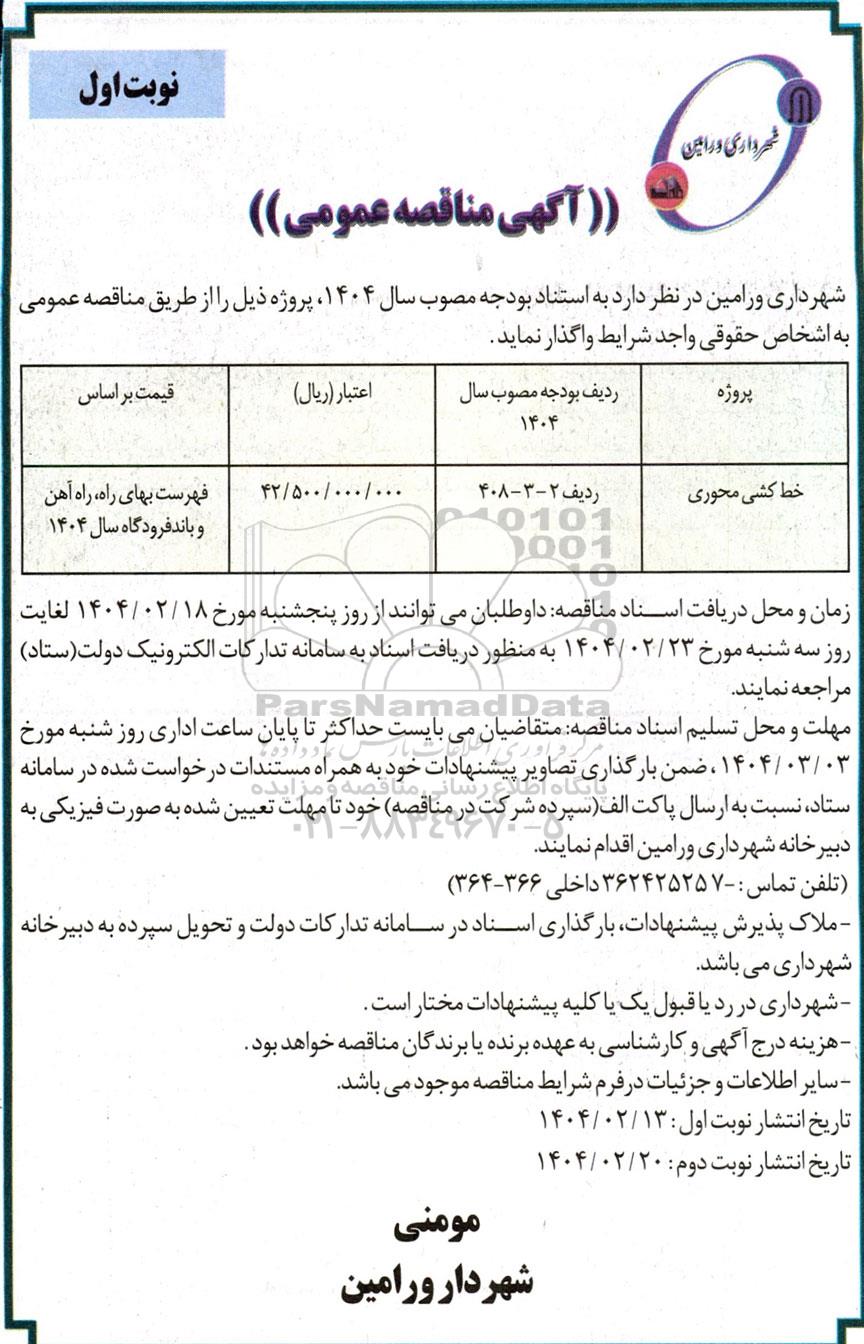 نوبت اول
شهرداری ورامین
((آگهی مناقصه عمومی))
شهرداری ورامین در نظر دارد به استناد بودجه مصوب سال ۱۴۰۴، پروژه ذیل را از طریق مناقصه عمومی
به اشخاص حقوقی واجد شرایط واگذار نماید.
پروژه
ردیف بودجه مصوب سال
۱۴۰۴
اعتبار (ریال)
قیمت بر اساس
خط کشی محوری
ردیف ۲-۳-۴۰۸
۴۲/۵۰۰/۰۰۰/۰۰۰
فهرست بهای راه، راه آهن
و باند فرودگاه سال ۱۴۰۴
زمان و محل دریافت اسناد مناقصه: داوطلبان می توانند از روز پنجشنبه مورخ ۱۴۰۴/۰۲/۱۸ لغایت
روز سه شنبه مورخ ۱۴۰۴/۰۲/۲۳ به منظور دریافت اسناد به سامانه تدارکات الکترونیک دولت(ستاد)
مراجعه نمایند.
ParsNamadData
مهلت و محل تسلیم اسناد مناقصه: متقاضیان می بایست حداکثر تا پایان ساعت اداری روز شنبه مورخ
مرکز فرآوری اطلاعات پارس نماد داده ها
۱۴۰۴/۰۳/۰۳، ضمن بارگذاری تصاویر پیشنهادات خود به همراه مستندات درخواست شده در سامانه
پایگاه اطلاع رسانی مناقصه و مزایده
ستاد، نسبت به ارسال پاکت الف(سپرده شرکت در مناقصه) خود تا مهلت تعیین شده به صورت فیزیکی به
۰۲۱-۸۸۳۴۹۶۷۰-۵
دبیرخانه شهرداری ورامین اقدام نمایند.
(تلفن تماس: -۳۶۲۴۲۵۲۵۷ داخلی ۳۶۶-۳۶۴)
-ملاک پذیرش پیشنهادات، بارگذاری اسناد در سامانه تدارکات دولت و تحویل سپرده به دبیرخانه
شهرداری می باشد.
-شهرداری در رد یا قبول یک یا کلیه پیشنهادات مختار است.
-هزینه درج آگهی و کارشناسی به عهده برنده یا برندگان مناقصه خواهد بود.
-سایر اطلاعات و جزئیات درفرم شرایط مناقصه موجود می باشد.
تاریخ انتشار نوبت اول: ۱۴۰۴/۰۲/۱۳
تاریخ انتشار نوبت دوم: ۱۴۰۴/۰۲/۲۰
مومنی
شهردار ورامین